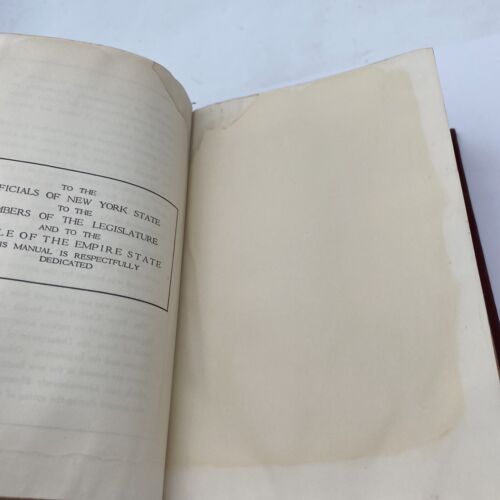 TO THE
FICIALS OF NEW YORK STATE
TO THE
MBERS OF THE LEGISLATURE
AND TO THE
LE OF THE EMPIRE STATE
IS MANUAL IS RESPECTFULLY
DEDICATED